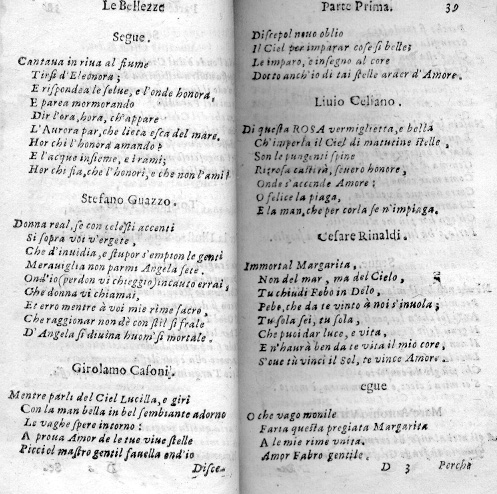 Le Bellezze
Segue.
Cantaua in riua al fiume
Tirsi d'Eleonora;
E rispondea le selue, e l'onde honora,
E parea mormorando
Dir l'ora, hora, ch'appare
L'Aurora par, che lieta esca del mare.
Hor chi l'honora amando?
E l'acque insieme, e i rami;
Hor chi fia, che l'honori, e che non l'ami?
Stefano Guazzo.
Donna real, se con celesti accenti
Si sopra voi v'ergete,
Che d'inuidia, e stupor s'empion le genti
Merauiglia non parmi Angela sete.
Ond'io (perdon vi chieggio) incauto errai,
Che donna vi chiamai,
Et erro mentre à voi mie rime sacro,
Che raggionar non dè con stil si frale
D'Angela si diuina huom si mortale.
Girolamo Casoni.
Mentre parli del Ciel Lucilla, e giri
Con la man bella in bel sembiante adorno
Le vaghe spere intorno:
A proua Amor de le tue viue stelle
Picciol mastro gentil fauella ond'io
Disce-
Parte Prima. 39
Discepol nouo oblio
Il Ciel per imparar cose si belle;
Le imparo, e insegno al core
Dotto anch'io di tai stelle arder d'Amore.
Liuio Celiano.
Di questa ROSA vermiglietta, e bella
Ch'imperla il Ciel di matutine stelle,
Son le pungenti spine
Ritrosa castità, seuero honore,
Onde s'accende Amore;
O felice la piaga,
E la man, che per corla se n'impiaga.
Cesare Rinaldi.
Immortal Margarita,
Non del mar, ma del Cielo,
Tu chiudi Febo in Delo,
Febo, che da te vinto à noi s'inuola;
Tu sola sei, tu sola,
Che puoi dar luce, e vita,
E n'haurà ben da te vita il mio core,
S'oue tù vinci il Sol, te vince Amore.
egue
O che vago monile
Faria questa pregiata Margarita
A le mie rime vnita.
Amor Fabro gentile.
D 3 Perche